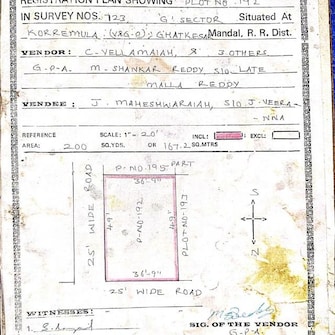 REGISTRATION PLAN SHOWING PLOT NO. 192
IN SURVEY NOS. 723 'G' SECTOR Situated At
KORREMULA (V&G.P); GHATKESAR Mandal, R. R. Dist.
VENDOR : C. VELLAMAIAH, & 3 OTHERS
G.P.A. M. SHANKAR REDDY S/O. LATE
MALLA REDDY
VENDEE : J. MAHESHWARAIAH, S/O J. VEERA-
NNA
REFERENCE SCALE: 1" = 20' INCL: EXCL:
AREA: 200 SQ.YDS. OR 167.2 SQ.MTRS
P-NO-195 PART
36'-9"
25' WIDE ROAD
49'
P-NO-192
49'
PLOT-NO-197
S
N
36'-9"
25' WIDE ROAD
WITNESSES:
1.
SIG. OF THE VENDOR
G.P.A